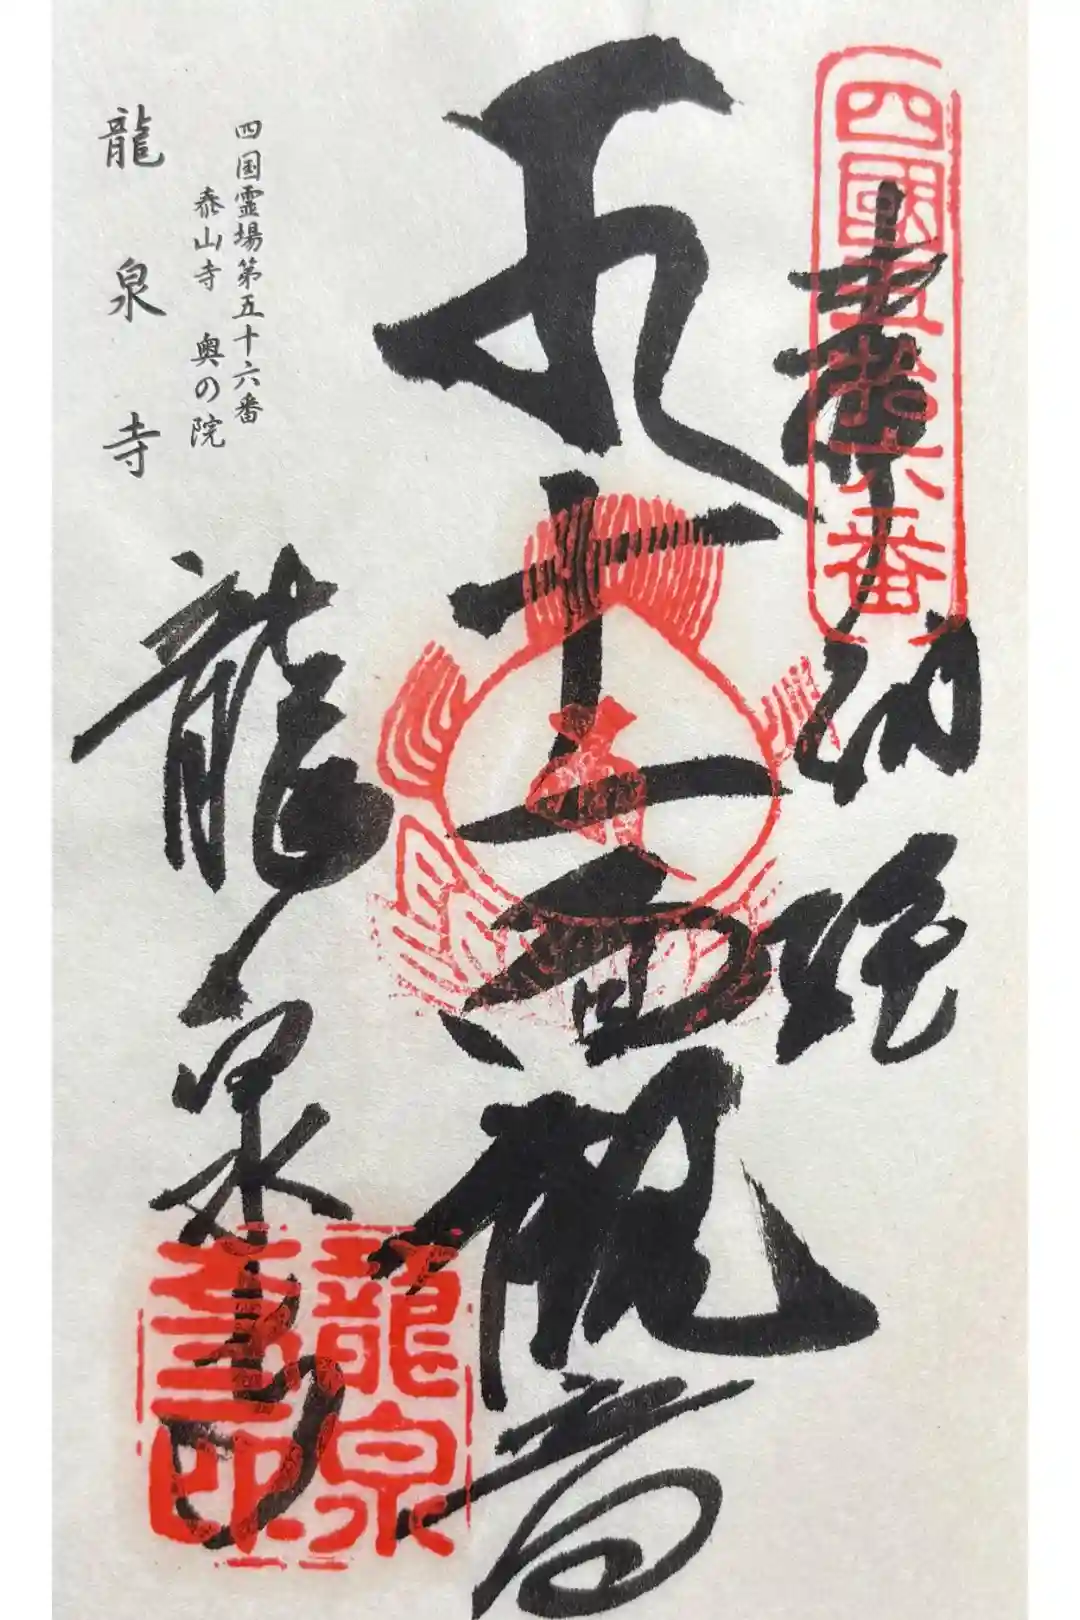 四國五拾六番
奉納経
十一面観音
四国霊場第五十六番
泰山寺 奥の院
龍泉寺
龍泉寺
龍泉寺印